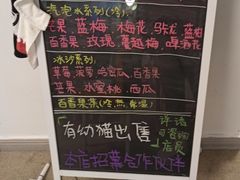 汽泡水系列(冷)
芒果、蓝莓、梅花、
百香果、玫瑰、蔓越梅、啤酒花
冰沙系列:
草莓、菠萝、哈密瓜、百香果
芒果、水蜜桃、西瓜
百香果茶(冷,热,常温)
有幼猫出售
详请
可咨询
店员
本店招募合作伙伴